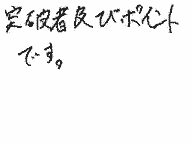 突破者及びポイント
です。